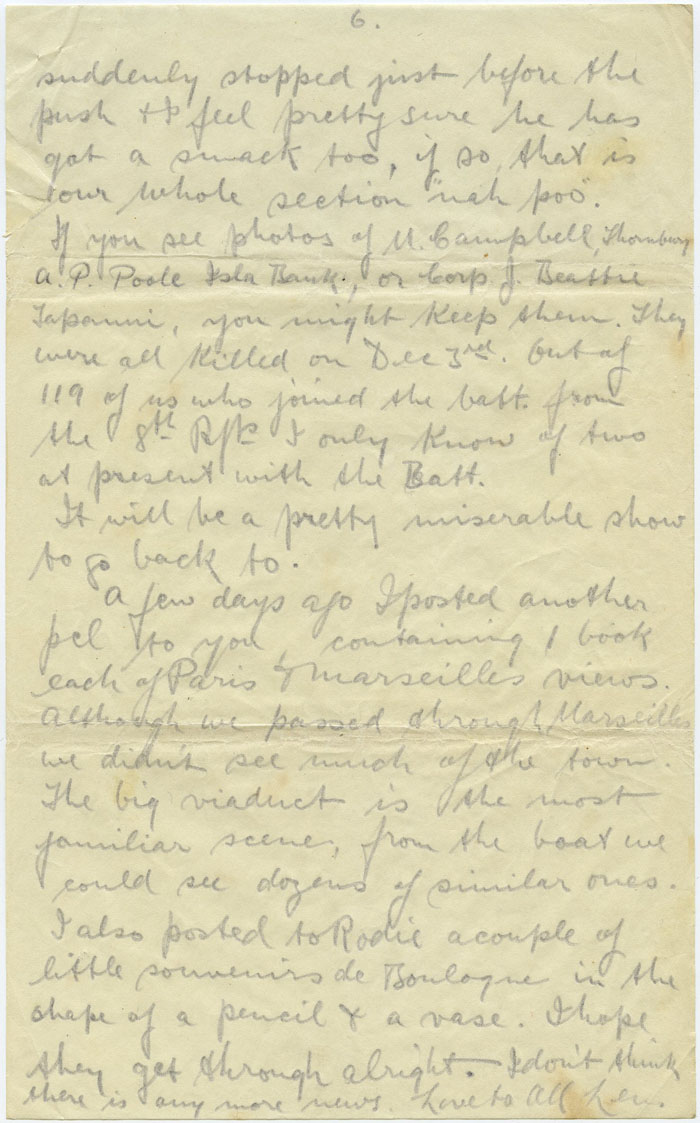 6.
suddenly stopped just before the
push & I feel pretty sure he has
got a smack too, if so, that is
our whole section "nah poo".
If you see photos of U. Campbell, Thornbury
A. P. Poole Isla Bank, or Corp. J. Beattie
Tapanui, you might keep them. They
were all killed on Dec 3rd. Out of
119 of us who joined the batt. from
the 8th Rfts I only know of two
at present with the Batt.
It will be a pretty miserable show
to go back to.
A few days ago I posted another
pcl to you, containing 1 book
each of Paris & Marseilles views.
Although we passed through Marseilles
we didn't see much of the town.
The big viaduct is the most
familiar scene, from the boat we
could see dozens of similar ones.
I also posted to Rodie a couple of
little souvenirs de Boulogne in the
shape of a pencil & a vase. I hope
they get through alright. I don't think
there is any more news. Love to All Len.